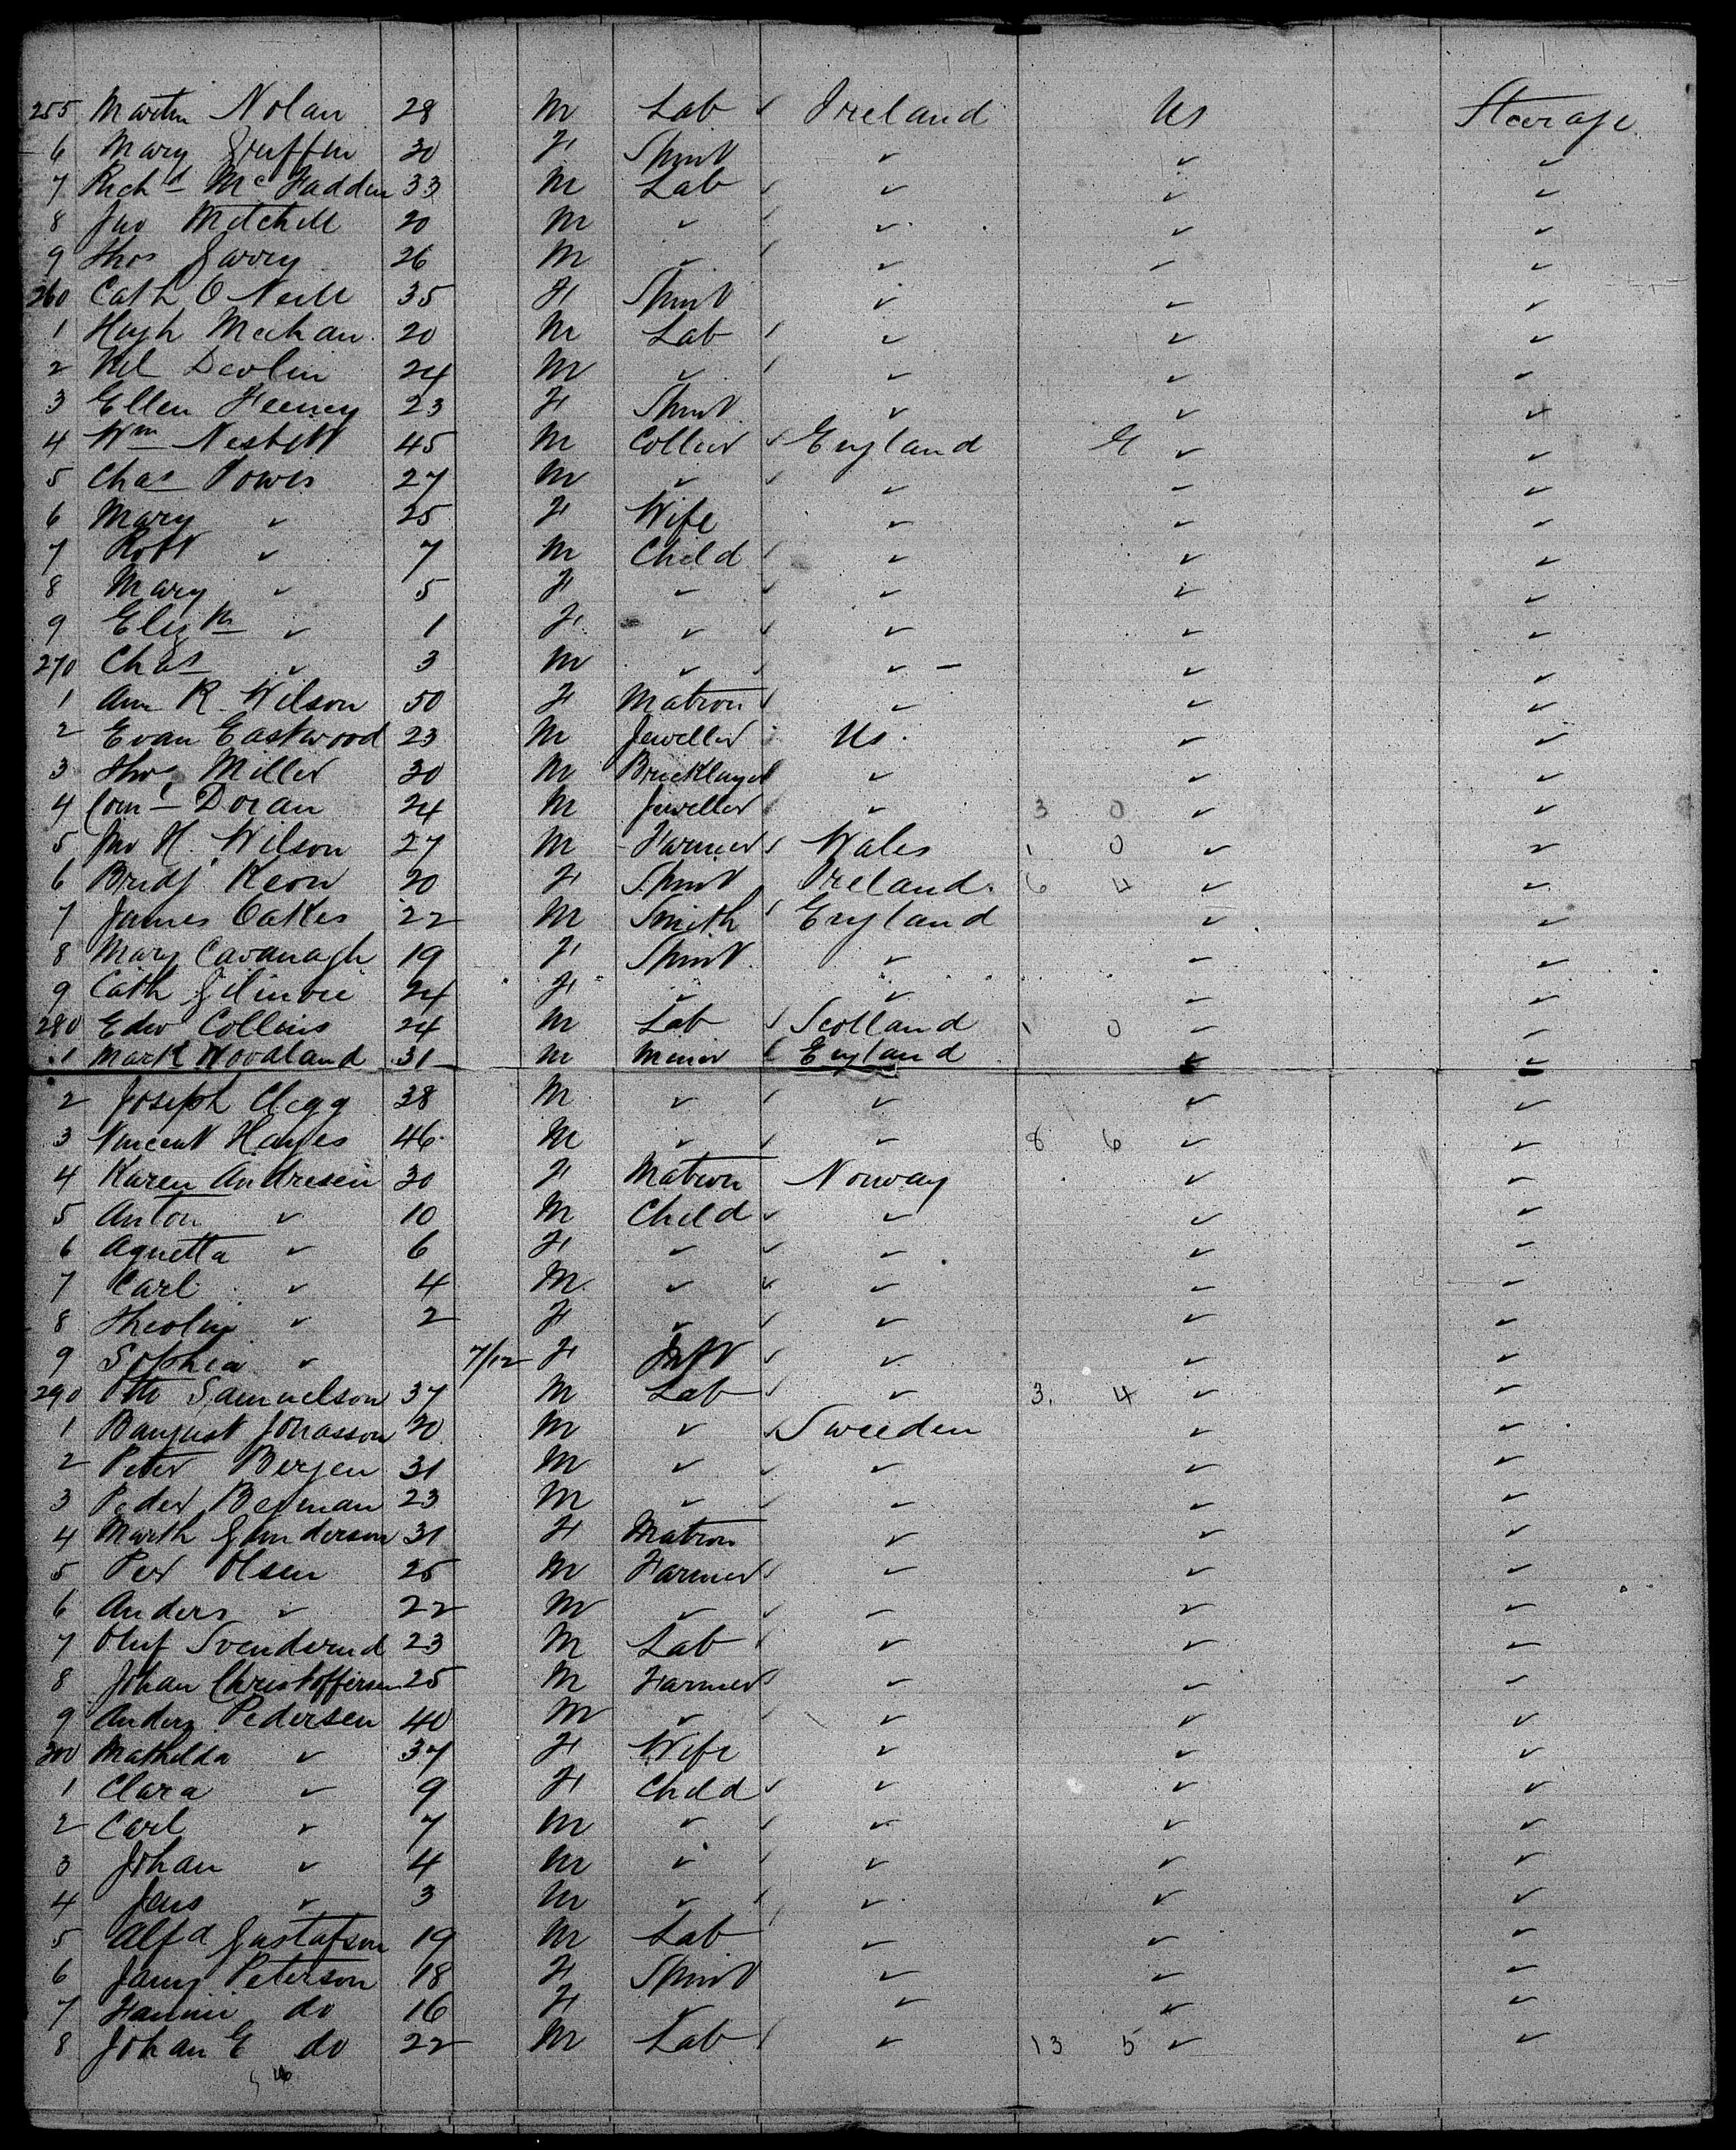 255 Martin Nolan 28 M Lab ✓ Ireland Us Steerage
6 Mary Griffin 30 F Spinst ✓ ✓ ✓
7 Richd McFadden 33 M Lab ✓ ✓ ✓ ✓
8 Jno Mitchell 20 M ✓ ✓ ✓ ✓ ✓
9 Thos Garry 26 M ✓ ✓ ✓ ✓ ✓
260 Cath O Neill 35 F Spinst ✓ ✓ ✓
1 Hugh Meehan 20 M Lab ✓ ✓ ✓ ✓
2 Devlin 24 M ✓ ✓ ✓ ✓ ✓
3 Ellen Feeney 23 F Spinst ✓ ✓ ✓
4 Wm Nesbitt 45 M Collier ✓ England E ✓ ✓
5 Chas Powes 27 M ✓ ✓ ✓ ✓ ✓
6 Mary ✓ 25 F Wife ✓ ✓ ✓
7 Robt ✓ 7 M Child ✓ ✓ ✓ ✓
8 Mary ✓ 5 F ✓ ✓ ✓ ✓ ✓
9 Elizth ✓ 1 F ✓ ✓ ✓ ✓ ✓
270 Chas ✓ 3 M ✓ ✓ ✓ – ✓ ✓
1 Ann R. Wilson 50 F Matron ✓ ✓ ✓ ✓
2 Evan Eastwood 23 M Jeweller Us. ✓ ✓
3 Thos Miller 30 M Bricklayer ✓ ✓ ✓
4 Doran 24 M Jeweller ✓ 3 0 ✓ ✓
5 Jno H. Wilson 27 M Farmer ✓ Wales 1 0 ✓ ✓
6 Bridj. Keon 20 F Spinst Ireland. 6 4 ✓ ✓
7 James Oakes 22 M Smith ✓ England ✓ ✓
8 Mary Cavanagh 19 F Spinst ✓ ✓ ✓
9 Cath Gilmore 24 F ✓ ✓ ✓ ✓
280 Edw Collins 24 M Lab ✓ Scotland 1 0 ✓ ✓
1 Mark Woodland 31 M Miner ✓ England ✓ ✓
2 Joseph Clegg 38 M ✓ ✓ ✓ ✓ ✓
3 Vincent Hayes 46 M ✓ ✓ ✓ 8 6 ✓ ✓
4 Karen Andresen 30 F Matron Norway ✓ ✓
5 Anton ✓ 10 M Child ✓ ✓ ✓ ✓
6 Agnetta ✓ 6 F ✓ ✓ ✓ ✓ ✓
7 Carl ✓ 4 M ✓ ✓ ✓ ✓ ✓
8 ✓ 2 F ✓ ✓ ✓ ✓ ✓
9 Sophia ✓ 7/12 F Inft ✓ ✓ ✓ ✓
290 Otto Samuelson 37 M Lab ✓ ✓ 3. 4 ✓ ✓
1 Jonasson 20 M ✓ ✓ Sweeden ✓ ✓
2 Peter Bergen 31 M ✓ ✓ ✓ ✓ ✓
3 Peder 23 M ✓ ✓ ✓ ✓ ✓
4 Marth Gunderson 31 F Matron ✓ ✓ ✓
5 Per Olsen 25 M Farmer ✓ ✓ ✓ ✓
6 Anders ✓ 22 M ✓ ✓ ✓ ✓ ✓
7 Oluf 23 M Lab ✓ ✓ ✓ ✓
8 Johan Christoffersen 25 M Farmer ✓ ✓ ✓ ✓
9 Anders Pedersen 40 M ✓ ✓ ✓ ✓ ✓
300 Mathilda ✓ 37 F Wife ✓ ✓ ✓
1 Clara ✓ 9 F Child ✓ ✓ ✓ ✓
2 Carl ✓ 7 M ✓ ✓ ✓ ✓ ✓
3 Johan ✓ 4 M ✓ ✓ ✓ ✓ ✓
4 Jens ✓ 3 M ✓ ✓ ✓ ✓ ✓
5 Alfd Gustafson 19 M Lab ✓ ✓ ✓
6 Peterson 18 F Spinst ✓ ✓ ✓
7 Fannie do 16 F ✓ ✓ ✓ ✓
8 Johan E do 22 M Lab ✓ ✓ 13 5 ✓ ✓